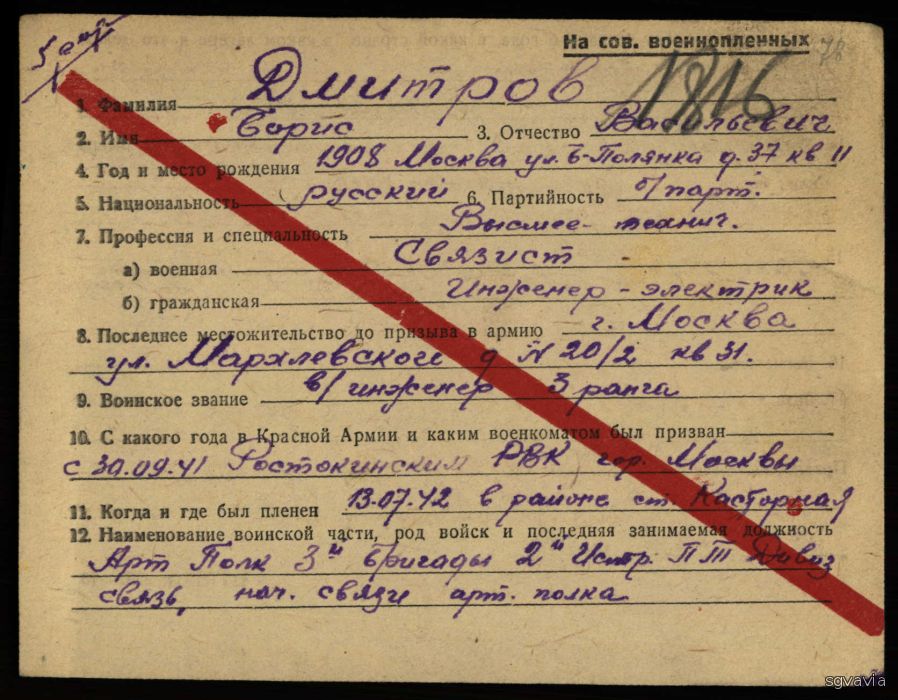 На сов. военнопленных
1816
1. Фамилия Дмитров
2. Имя Борис 3. Отчество Васильевич
4. Год и место рождения 1908 Москва ул. Б-Полянка д. 37 кв 11
5. Национальность русский 6. Партийность б/парт.
7. Профессия и специальность Высшее-технич.
а) военная Связист
б) гражданская Инженер-электрик
8. Последнее местожительство до призыва в армию г. Москва
ул. Мархлевского д N 20/2 кв 31.
9. Воинское звание в/инженер 3 ранга
10. С какого года в Красной Армии и каким военкоматом был призван
с 30.09.41 Ростокинским РВК гор. Москвы
11. Когда и где был пленен 13.07.42 в районе ст. Касторная
12. Наименование воинской части, род войск и последняя занимаемая должность
Арт Полк 3й бригады 2й Истр. ПТ Дивиз
связь, нач. связи арт. полка
sgvavia